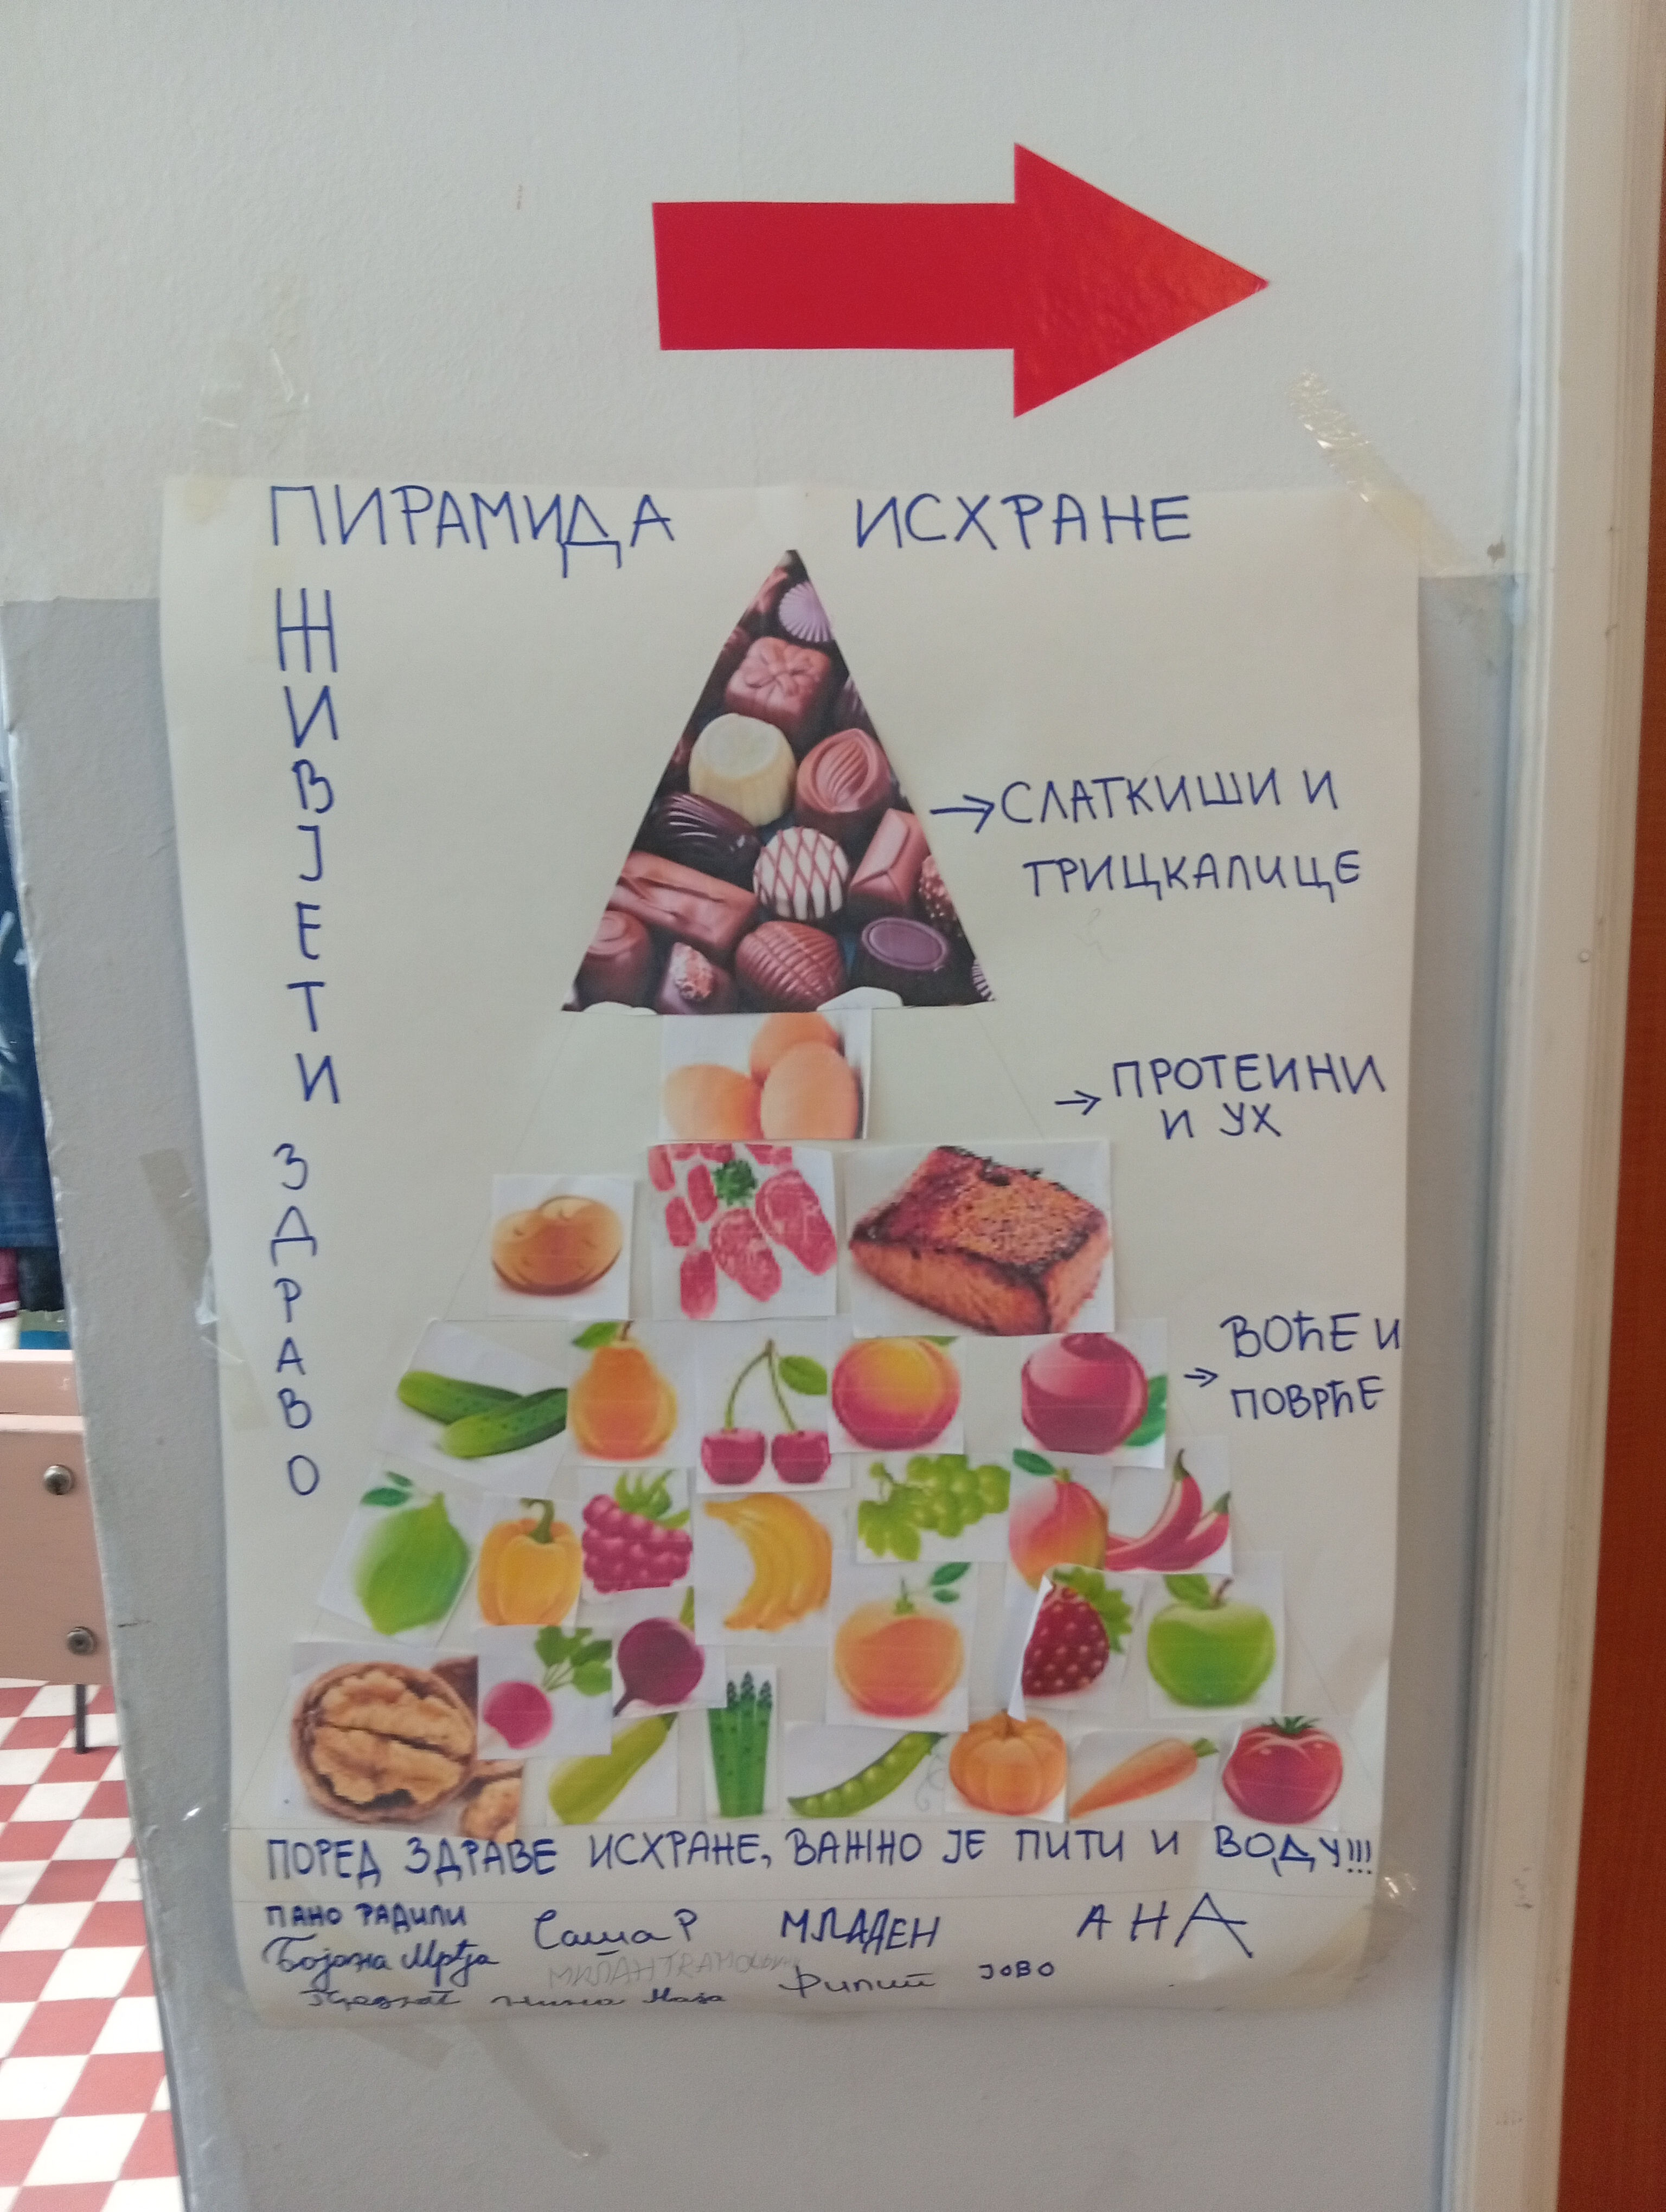 ПИРАМИДА ИСХРАНЕ
ЖИВЈЕТИ ЗДРАВО
→ СЛАТКИШИ И
ТРИЦКАЛИЦЕ
→ ПРОТЕИНИ
И УХ
→ ВОЋЕ И
ПОВРЋЕ
ПОРЕД ЗДРАВЕ ИСХРАНЕ, ВАЖНО ЈЕ ПИТИ И ВОДУ!!!
ПАНО РАДИЛИ
Бојана Мрђа Саша Р МЛАДЕН АНА
МИЛАН
Нина Маја Филип ЈОВО